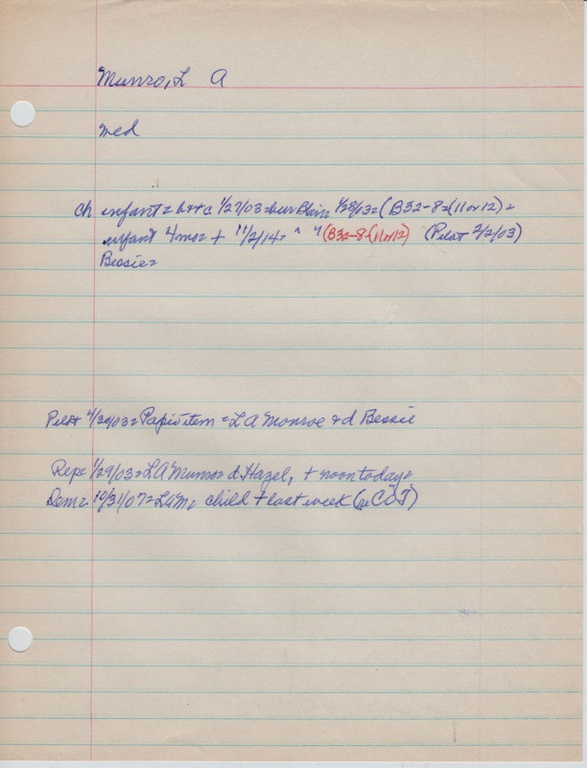 Munro, L A
med
ch infant = b++c 1/27/03 = bur Blair 1/28/03 = (B32-8=(11 or 12) =
infant 4mo = + 11/2/14 = ^ " (B32-8=(11 or 12) (Pilot 2/2/03)
Bessie =
Pilot 4/30/03 = Papio item = L A Monroe & d Bessie
Rep = 1/29/03 = LA Munro = d Hazel, + noon today =
Dem = 10/31/07 = LAM = child + last week (